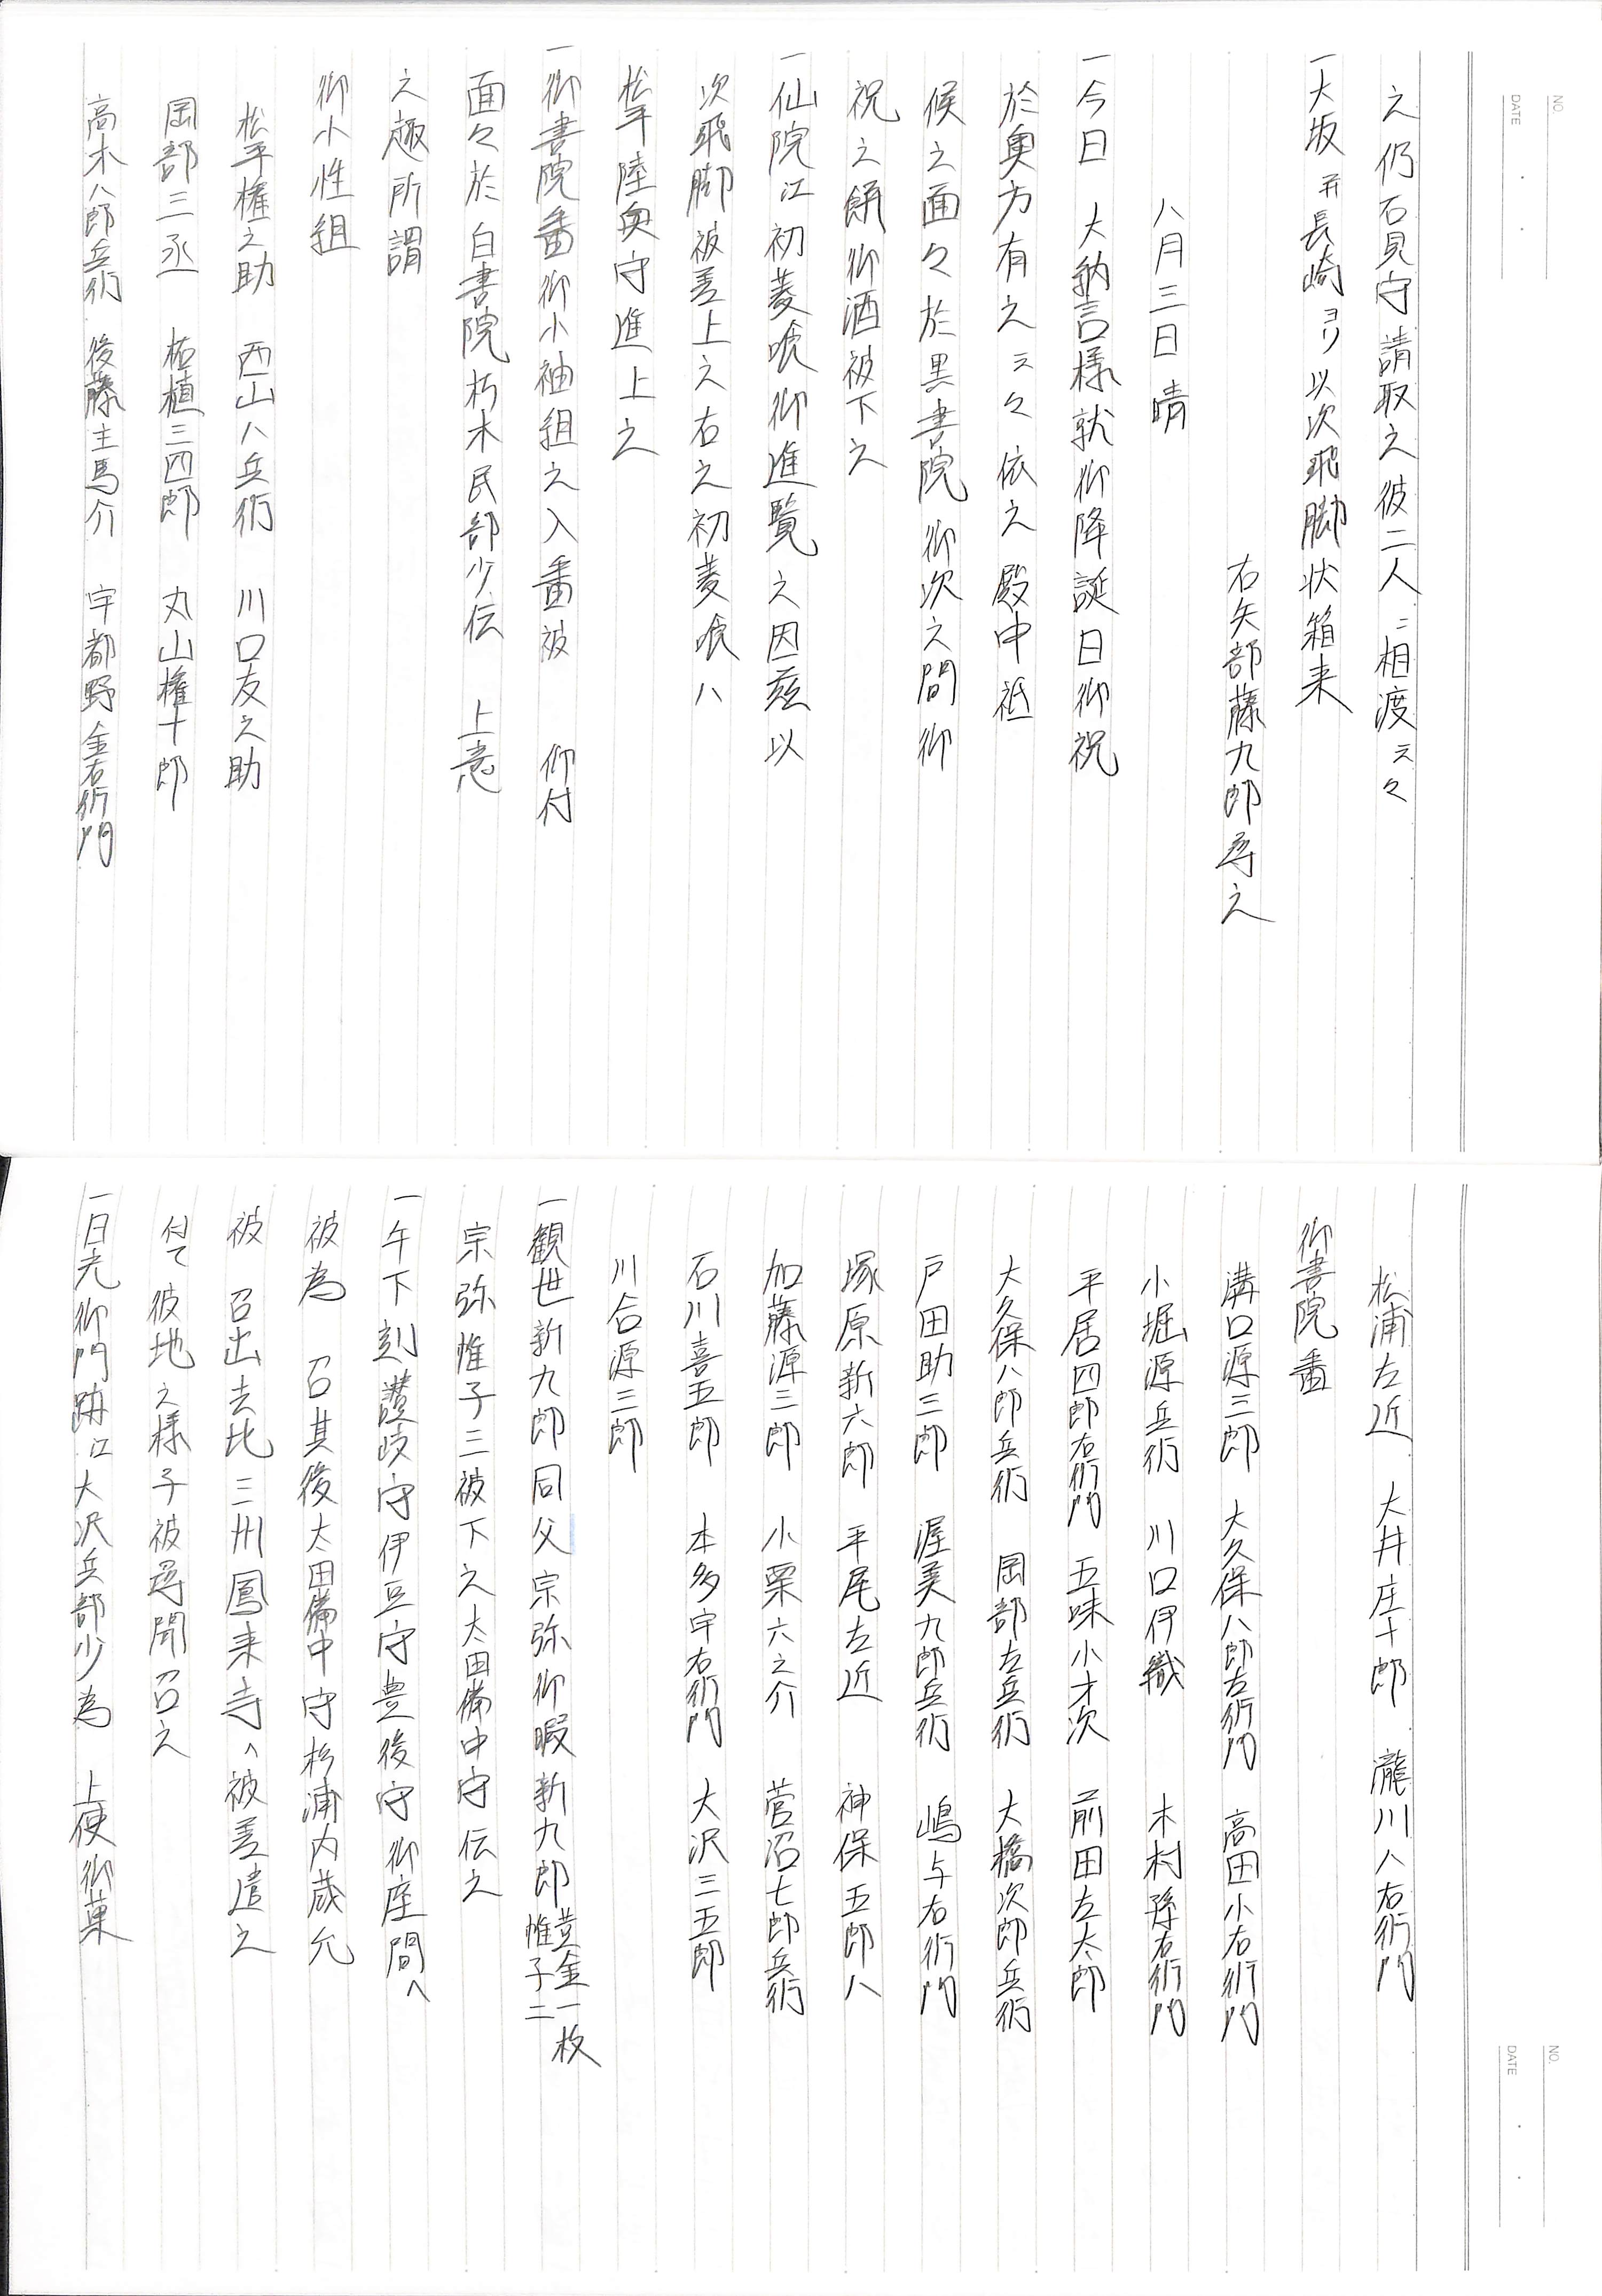 NO.
DATE
之仍石見守請取之彼二人ニ相渡云々
一大坂幷長崎ヨリ以次飛脚状箱来
右矢部藤九郎尋之
八月三日 晴
一今日 大納言様就御降誕日御祝
於奥方有之云々依之殿中祗
候之面々於黒書院御次之間御
祝之餅御酒被下之
一仙院江初菱喰御進覧之因茲以
次飛脚被差上之右之初菱喰ハ
松平陸奥守進上之
一御書院番御小袖組之入番被 仰付
面々於白書院朽木民部少伝 上意
之趣所謂
御小性組
松平権之助 西山八兵衛 川口友之助
岡部三丞 柘植三四郎 丸山権十郎
高木八郎兵衛 後藤主馬介 宇都野金右衛門
NO.
DATE
松浦左近 大井庄十郎 瀧川八右衛門
御書院番
溝口源三郎 大久保八郎右衛門 高田小右衛門
小堀源兵衛 川口伊織 木村孫右衛門
平居四郎右衛門 五味小才次 前田左太郎
大久保八郎兵衛 岡部左兵衛 大橋次郎兵衛
戸田助三郎 渥美九郎兵衛 嶋与右衛門
塚原新六郎 平尾左近 神保五郎八
加藤源三郎 小栗六之介 菅沼七郎兵衛
石川喜五郎 本多宇右衛門 大沢三五郎
川合源三郎
一観世新九郎同父宗弥御暇新九郎黄金一枚帷子二
宗弥帷子三被下之太田備中守伝之
一午下刻讃岐守伊豆守豊後守御座間へ
被為 召其後太田備中守杉浦内蔵允
被 召出去比三州鳳来寺へ被差遣之
付て彼地之様子被尋聞召之
一日光御門跡江大沢兵部少為 上使御菓